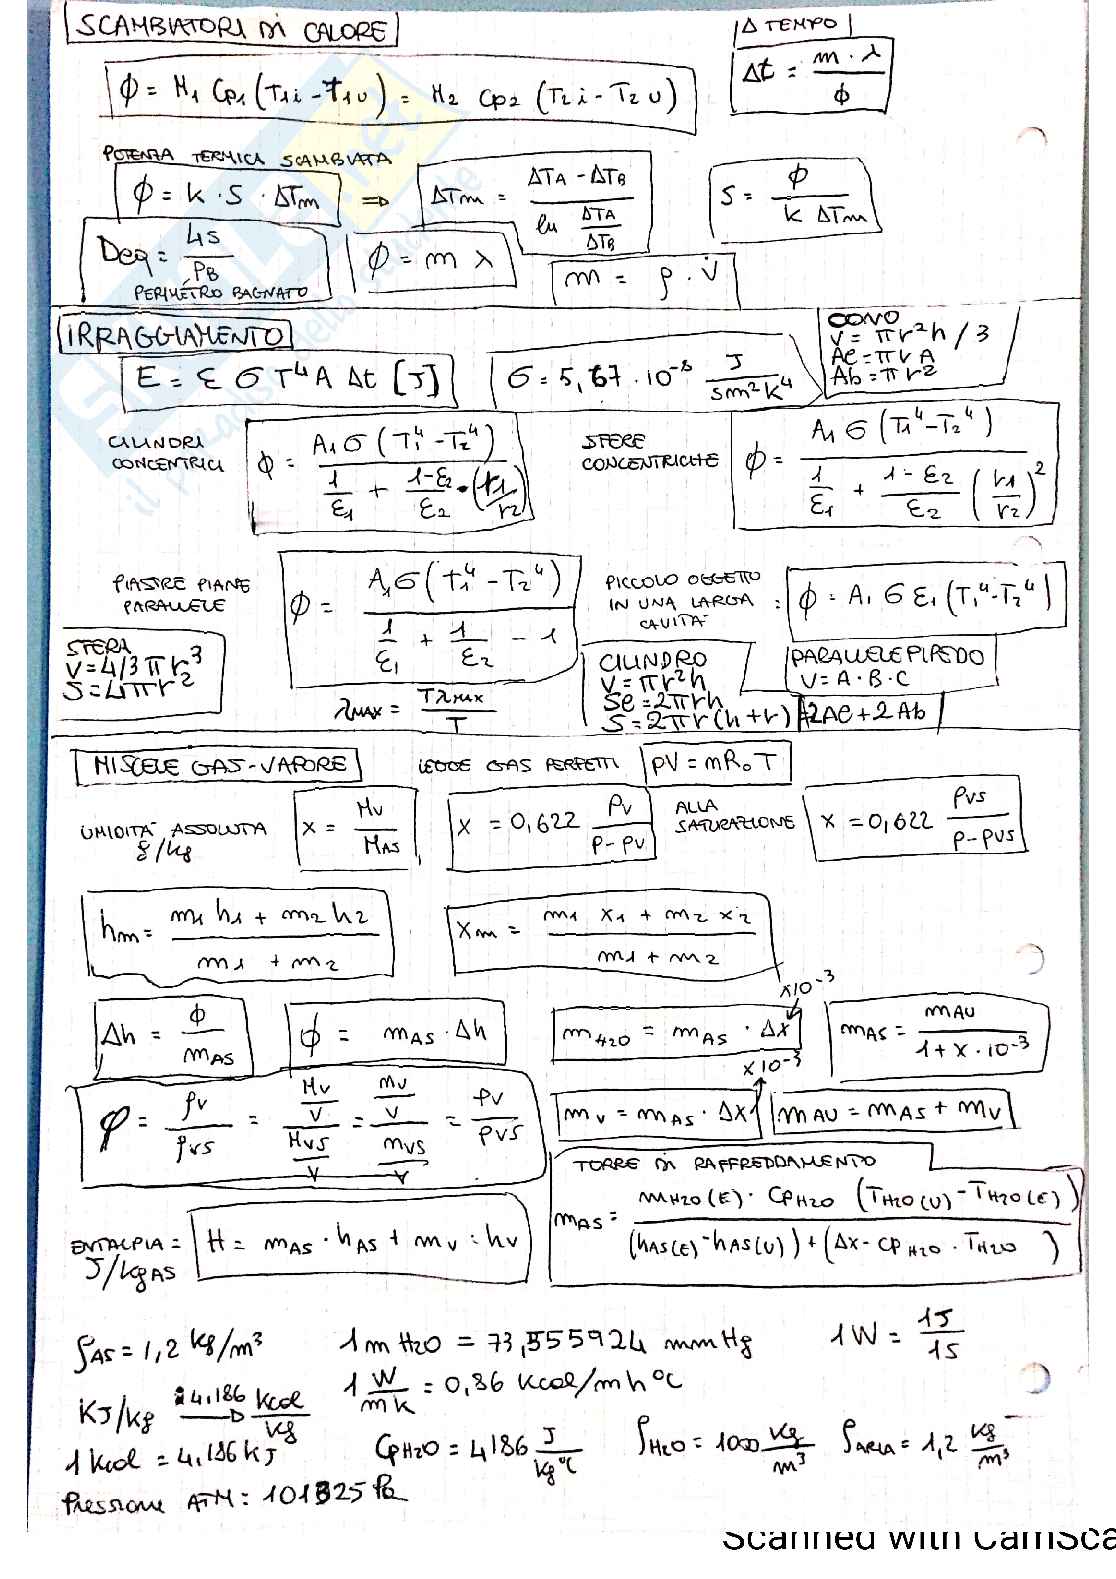 SCAMBIATORI DI CALORE
Δ TEMPO
ϕ = M1 Cp1 (T1i - T1u) = M2 Cp2 (T2i - T2u)
Δt = m · λ / ϕ
POTENZA TERMICA SCAMBIATA
ϕ = k · S · ΔTm ⇒ ΔTm = (ΔTA - ΔTB) / (ln ΔTA/ΔTB)
S = ϕ / (k ΔTm)
Deq = 4S / PB
PERIMETRO BAGNATO
ϕ = m λ
m = ρ · V̇
IRRAGGIAMENTO
E = ε σ T⁴ A Δt [J]
σ = 5,67 · 10⁻⁸ J / sm²k⁴
CONO
V = πr²h / 3
Ae = πr A
Ab = πr²
CILINDRI CONCENTRICI
ϕ = A1 σ (T1⁴ - T2⁴) / (1/ε1 + (1-ε2)/ε2 · (r1/r2))
SFERE CONCENTRICHE
ϕ = A1 σ (T1⁴ - T2⁴) / (1/ε1 + (1-ε2)/ε2 (r1/r2)²)
PIASTRE PIANE PARALLELE
ϕ = A1 σ (T1⁴ - T2⁴) / (1/ε1 + 1/ε2 - 1)
PICCOLO OGGETTO IN UNA LARGA CAVITÀ :
ϕ = A1 σ ε1 (T1⁴ - T2⁴)
SFERA
V = 4/3 πr³
S = 4πr²
λMAX = TλMAX / T
CILINDRO
V = πr²h
Se = 2πrh
S = 2πr(h+r)
PARALLELEPIPEDO
V = A · B · C
2Ae + 2Ab
MISCELE GAS-VAPORE
LEGGE GAS PERFETTI
pV = mR₀T
UMIDITÀ ASSOLUTA g/kg
x = Mv / MAS
x = 0,622 pv / (p - pv)
ALLA SATURAZIONE
x = 0,622 pvs / (p - pvs)
hm = (m1 h1 + m2 h2) / (m1 + m2)
xm = (m1 x1 + m2 x2) / (m1 + m2)
x10⁻³
Δh = ϕ / mAS
ϕ = mAS · Δh
mH2O = mAS · Δx
mAS = mAU / (1 + x · 10⁻³)
x10⁻³
φ = ρv / ρvs = (Mv/V) / (Mvs/V) = (mv/V) / (mvs/V) = pv / pvs
mv = mAS · Δx
mAU = mAS + mv
TORRE DI RAFFREDDAMENTO
mAS = mH2O(E) · CpH2O (TH2O(U) - TH2O(E)) / ((hAS(E) - hAS(U)) + (Δx - CpH2O · TH2O))
ENTALPIA = J/kgAS
H = mAS · hAS + mv · hv
ρAS = 1,2 kg/m³
1 m H2O = 73,555924 mmHg
1W = 1J / 1S
KJ/kg : 4,186 → kcal/kg
1 W/mk = 0,86 kcal/mh°C
1 kcal = 4,186 kJ
CpH2O = 4186 J/kg°C
ρH2O = 1000 kg/m³
ρARIA = 1,2 kg/m³
Pressione ATM : 101325 Pa
Scanned with CamSca